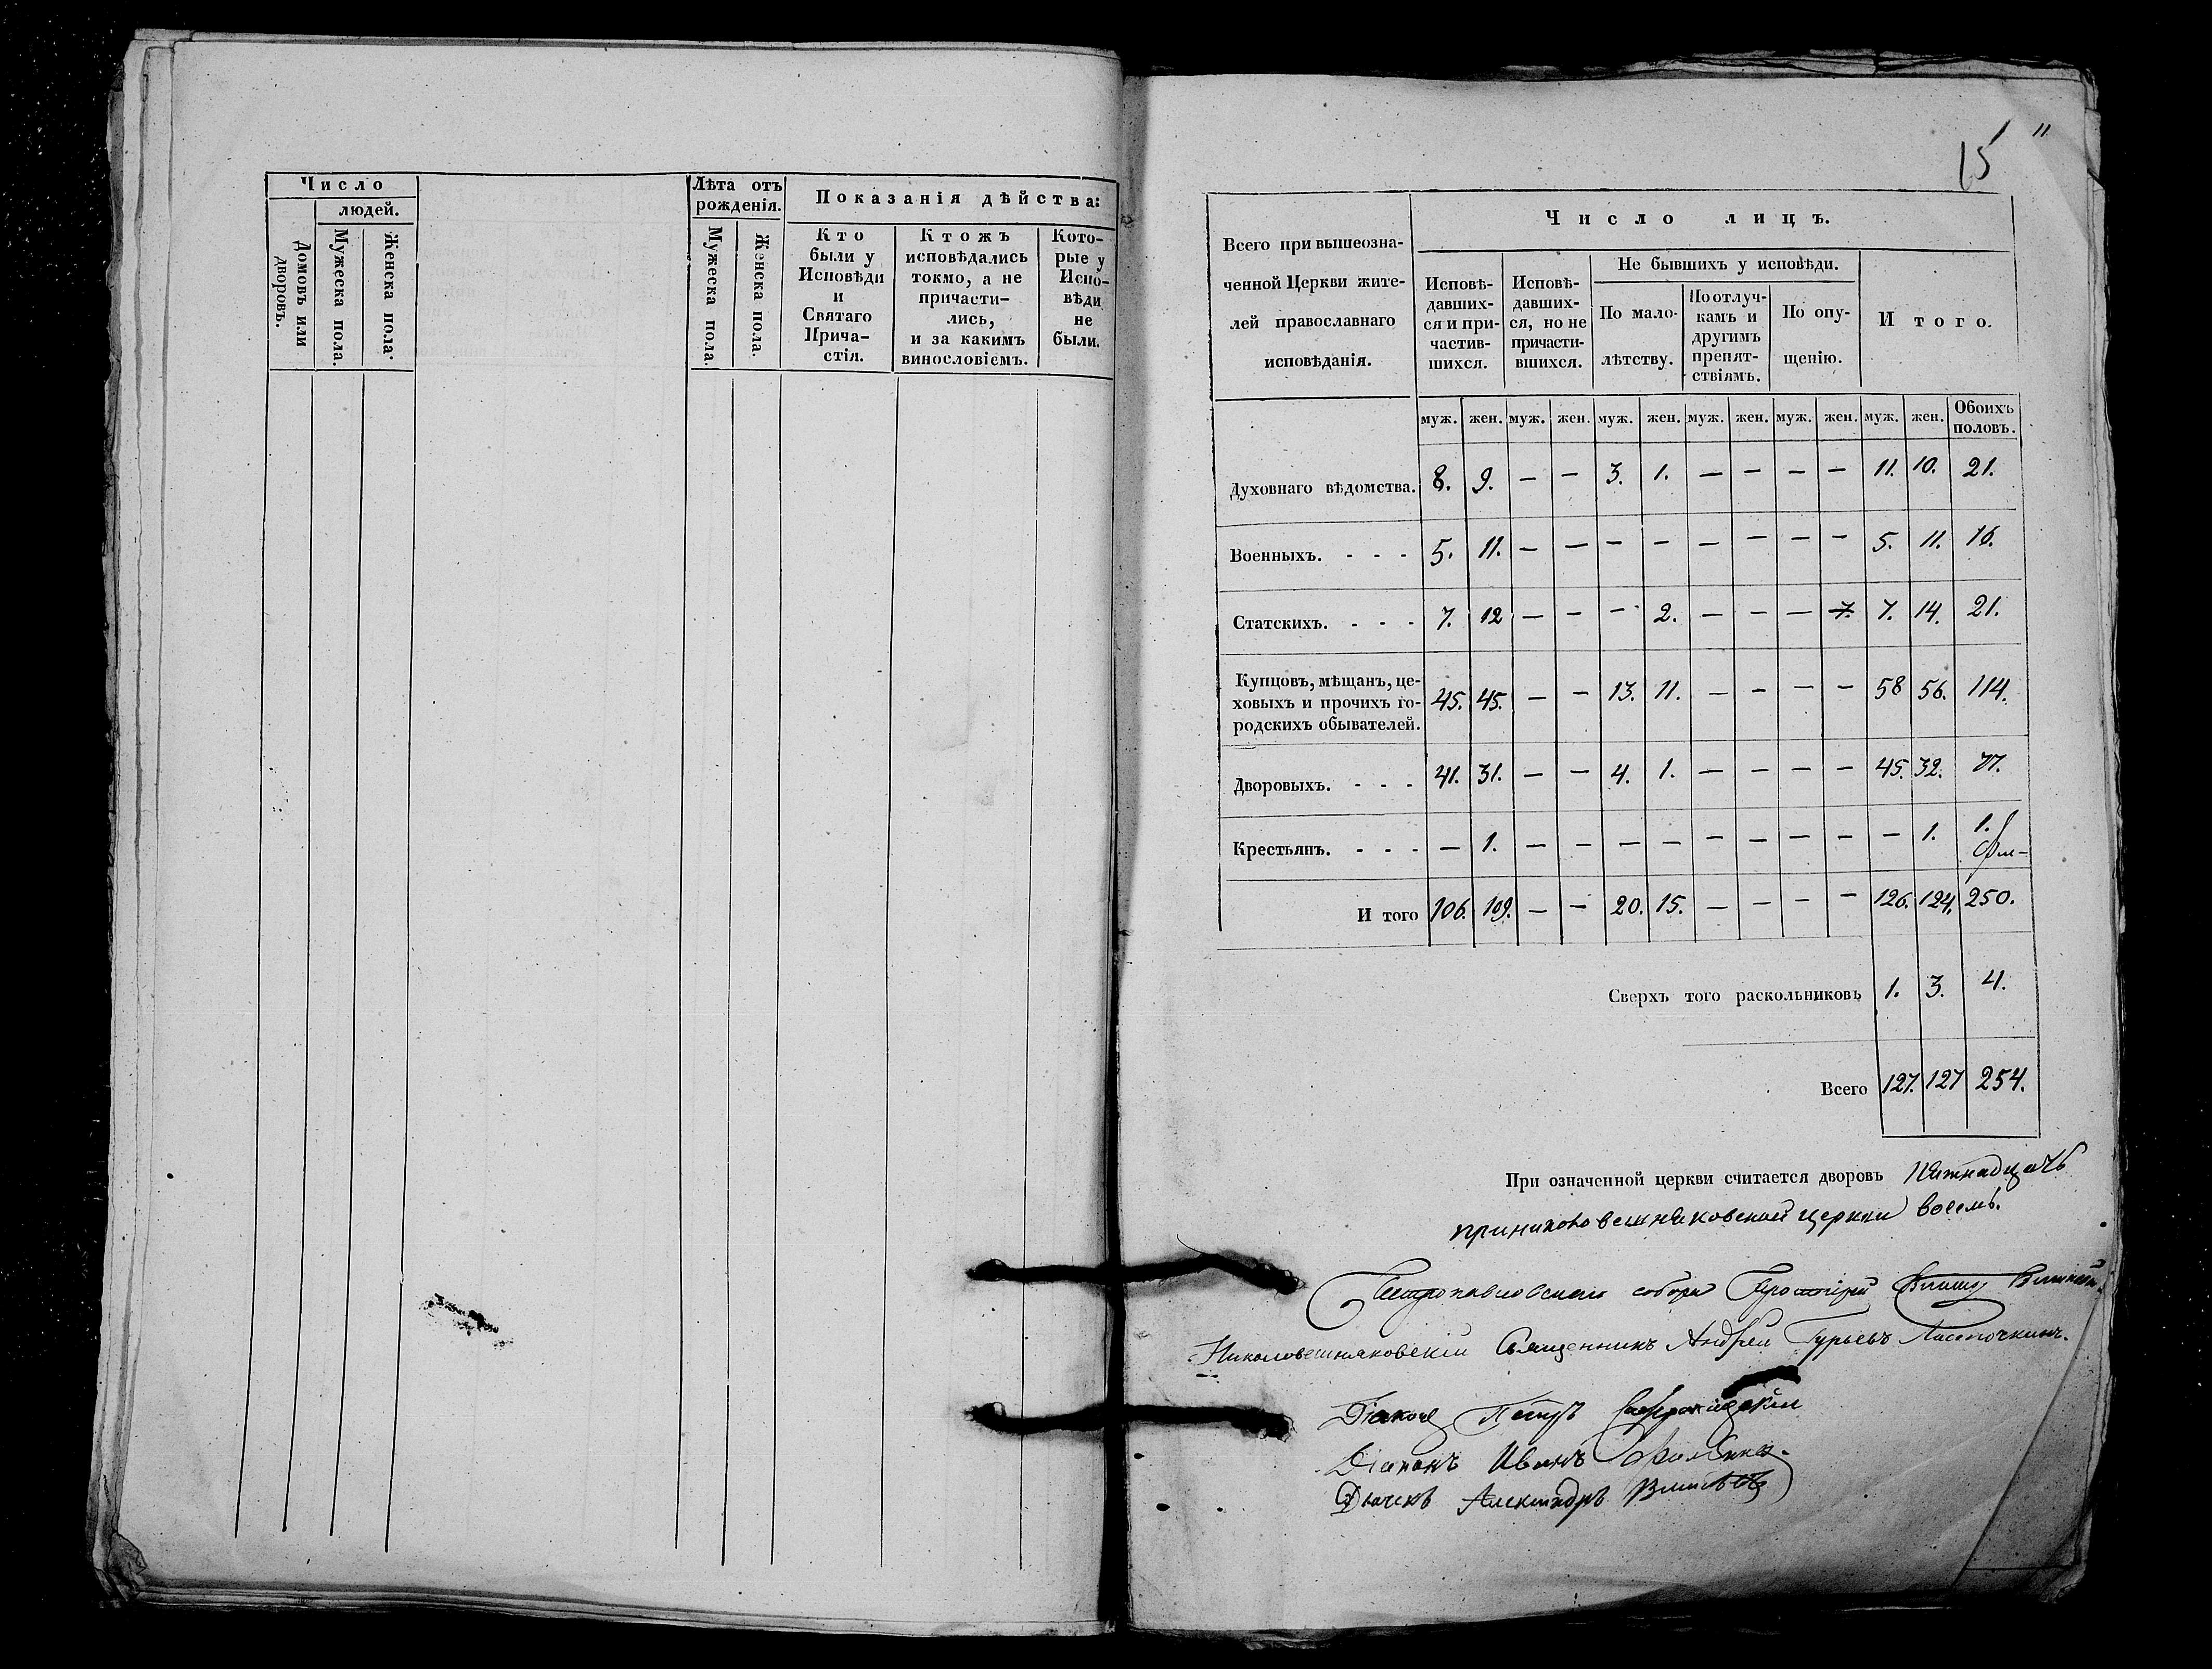 Число
людей.
Домовъ или дворовъ.
Мужеска пола.
Женска пола.
Лѣта отъ рожденія.
Мужеска пола.
Женска пола.
Показанія дѣйства:
Кто были у Исповѣди и Святаго Прича-стія.
Ктожъ исповѣдались токмо, а не причасти-лись, и за какимъ винословіемъ.
Кото-рые у Испо-вѣди не были.
15
11
Всего при вышеозна-
ченной Церкви жите-
лей православнаго
исповѣданія.
Число лицъ.
Исповѣ-давших-ся и при-частив-шихся.
Исповѣ-давших-ся, но не причасти-вшихся.
Не бывшихъ у исповѣди.
По мало-лѣтству.
По отлуч-камъ и другимъ препят-ствіямъ.
По опу-щенію.
Итого.
муж. жен. муж. жен. муж. жен. муж. жен. муж. жен. муж. жен. Обоихъ половъ.
Духовнаго вѣдомства. 8. 9. — — 3. 1. — — — — 11. 10. 21.
Военныхъ. - - - 5. 11. — — — — — — — — 5. 11. 16.
Статскихъ. - - - 7. 12 — — — 2. — — — 7. 7. 14. 21.
Купцовъ, мѣщанъ, це-
ховыхъ и прочихъ го-
родскихъ обывателей. 45. 45. — — 13. 11. — — — — 58 56. 114.
Дворовыхъ. - - - 41. 31. — — 4. 1. — — — — 45. 32. 77.
Крестьянъ. - - - — 1. — — — — — — — — — 1. 1.
И того 106. 109. — — 20. 15. — — — — 126. 124. 250.
Сверхъ того раскольниковъ 1. 3. 4.
Всего 127. 127 254.
При означенной церкви считается дворовъ пятнадцать
приниколовешняковской церкви восемь.
Петропавловскаго собора Протоіерей
Николовешняковскій Священникъ Андрей Гурьевъ Ласточкинъ.
Діаконъ Петръ
Діаконъ Иванъ
Дьячекъ Александръ